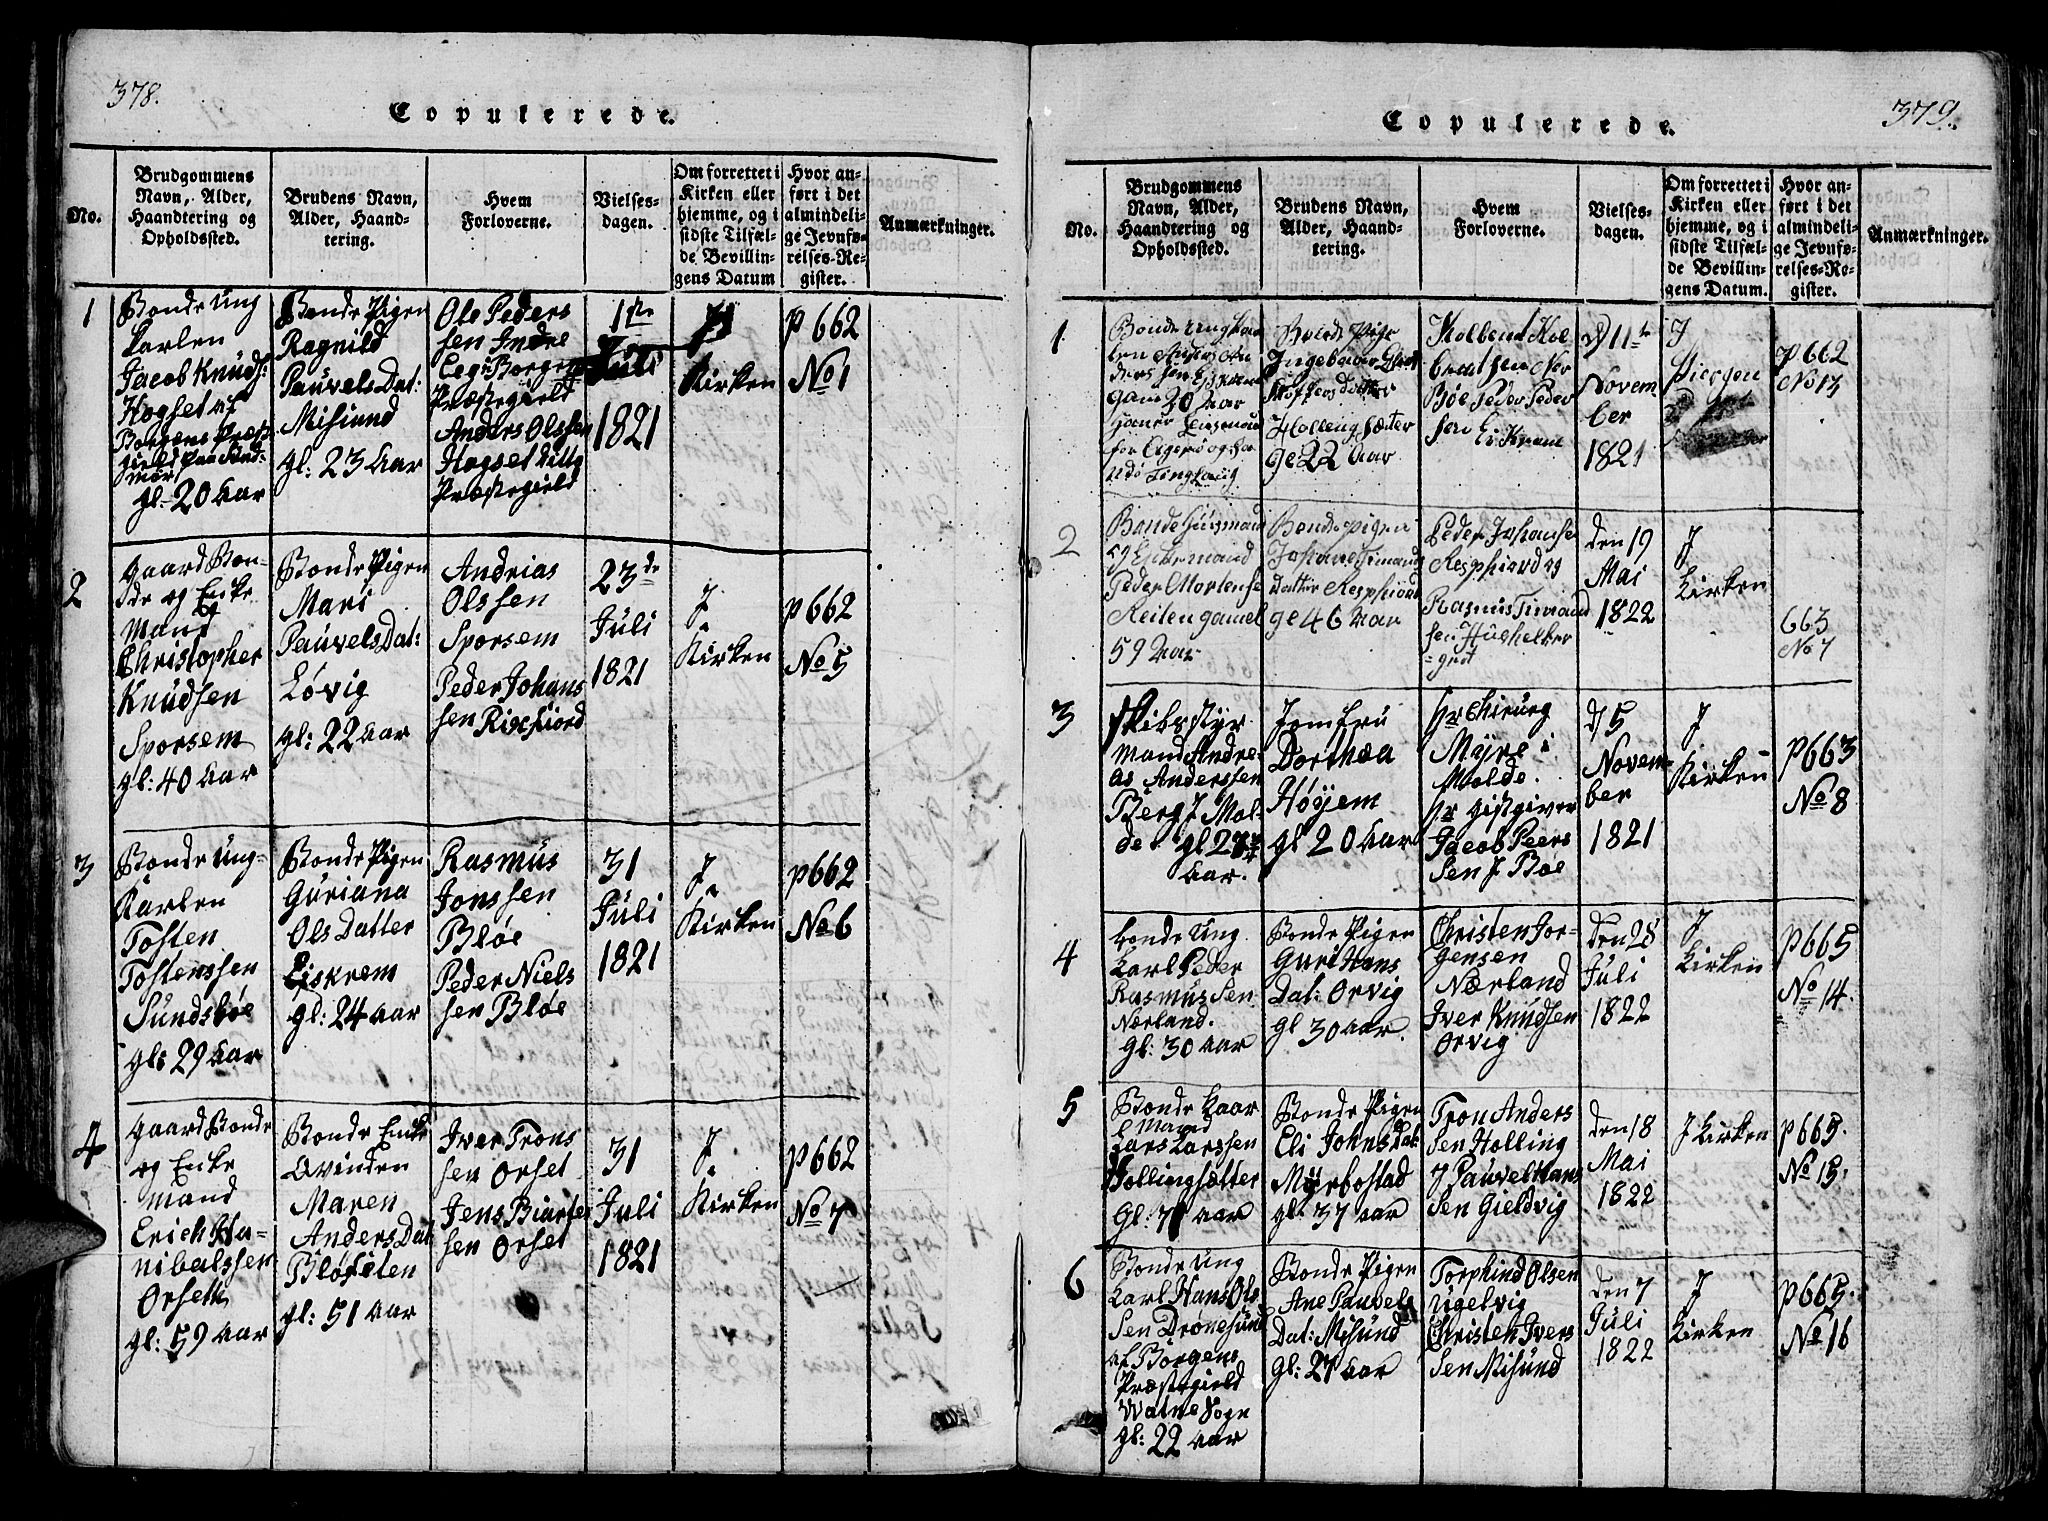 378.
Copulerede.
No.
Brudgommens
Navn, Alder,
Haandtering og
Opholdssted.
Brudens Navn,
Alder, Haand-
tering.
Hvem
Forloverne.
Vielses-
dagen.
Om forrettet i
Kirken eller
hjemme, og i
sidste Tilfæl-
de Bevillin-
gens Datum
Hvor an-
ført i det
almindeli-
ge Jevnfø-
relses-Re-
gister.
Anmærkninger.
1
Bonde Ung
karlen
Jacob Knuds:
Hogset af
Borgens Præst
gield paa Sünd-
mør
gl: 20 Aar
Bonde Pigen
Ragnild
Pauvels Dat:
Misund
gl: 23 Aar
Ole Peders
sen Indre
Præstegield
Anders Olssen
Hogset
Præstegield
1ste
Juli
1821
Kirken
p 662
No 1
2
gaard Bon-
de og Enke
Mand
Christopher
Knudsen
Sporsem
gl: 40 Aar
Bonde Pigen
Mari
Pauvels Dat:
Løvig
gl: 22 Aar
Andrias
Olssen
Sporsem
Peder Johans
sen Rixfiord
23de
Juli
1821
J
Kirken
p662
No 5
3
Bonde Ung-
Karlen
Tosten
Tostenssen
Sundsbøe
gl: 29 Aar
Bonde Pigen
Guriana
Ols Datter
Ejskrem
gl: 24 Aar
Rasmus
Jonssen
Bløe
Peder Niels
sen Bløe
31
Juli
1821
J
Kirken
p662
No 6
4
gaard Bonde
og Enke
mand
Erich Ha-
nibalssen
Orseth
gl: 59 Aar
Bonde Enke
Qvinden
Maren
Anders Dat
gl: 51 Aar
Iver Trons
sen Orset
Jens Biarte
sen Orset
31
Juli
1821
J
Kirken
p662
No 7
379.
Copulerede.
No.
Brudgommens
Navn, Alder,
Haandtering og
Opholdssted.
Brudens Navn,
Alder, Haand-
tering.
Hvem
Forloverne.
Vielses-
dagen.
Om forrettet i
Kirken eller
hjemme, og i
sidste Tilfæl-
de Bevillin-
gens Datum.
Hvor an-
ført i det
almindeli-
ge Jevnfø-
relses-Re-
gister.
Anmærkninger.
1
gam 30 Aar
Hollingsæter
ge 22 Aar
Bøe Peder Peder
sen
11te
Novem
ber
1821
J
p662
No 13
2
Peder Mortense
Reiten gamel
59 Aar
Bonde pigen
ge 46 Aar
Peder Johanse
Rasmus
den 19
Mai
1822
J
Kirken
663
No 7
3
Skibsstyr
mand Andre-
as Anderssen
Berg J Mol-
de. gl 27
Aar.
Jomfru
Dorthæa
Høyem
gl 20 Aar
Hr Chirurg
Myre i
Molde.
Hr gistgiver
Jacob Peers
Sen J Boe
d 5
Novem-
ber
1821
J
Kirken
p663
No 8
4
Bonde Ung
Karl Peder
Rasmus Sen
Nærland.
gl: 30 Aar
Bonde Pigen
Guri Hans
Dat: Orvig
gl 30 Aar.
Christen Jor-
gensen
Nærland
Iver Knudsen
Orvig
den 28
Juli
1822
J
Kirken
p665
No 14.
5
Bonde Kaar
Mand
Lars Larssen
Hollingsætter
Gl: 71 aar
Bonde Pigen
Eli Johns Dat:
Myrbostad
gl: 37 aar
Tron Anders
Sen Holling
J Pauvel Hans
Sen Gieldvig
den 18
Mai
1822
J Kirken
p665.
No 15.
6
Bonde Ung
Karl Hans Ols
Sen Dronesund
af Borgens
Præstegield
Watne Sogn
gl: 22 Aar
Bonde Pigen
Ane Pauvels
Dat: Misund
gl: 27 Aar
Torphind Olsen
Ugelvig
Christen Ivers
Sen Misund
den 7
Juli
1822
J
Kirken
p665.
No 16